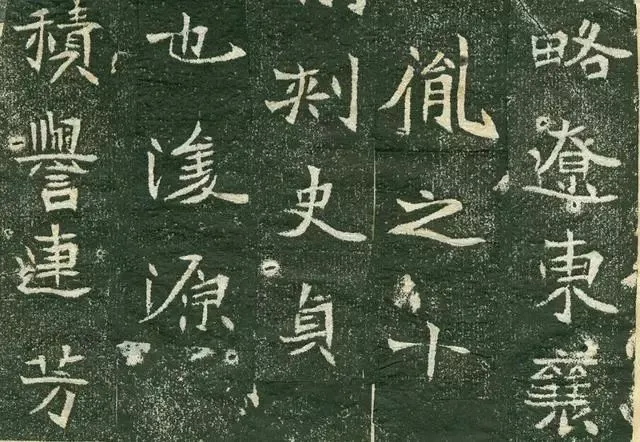 略遼東襄
胤之十
刺史貞
也浚源
積譽連芳